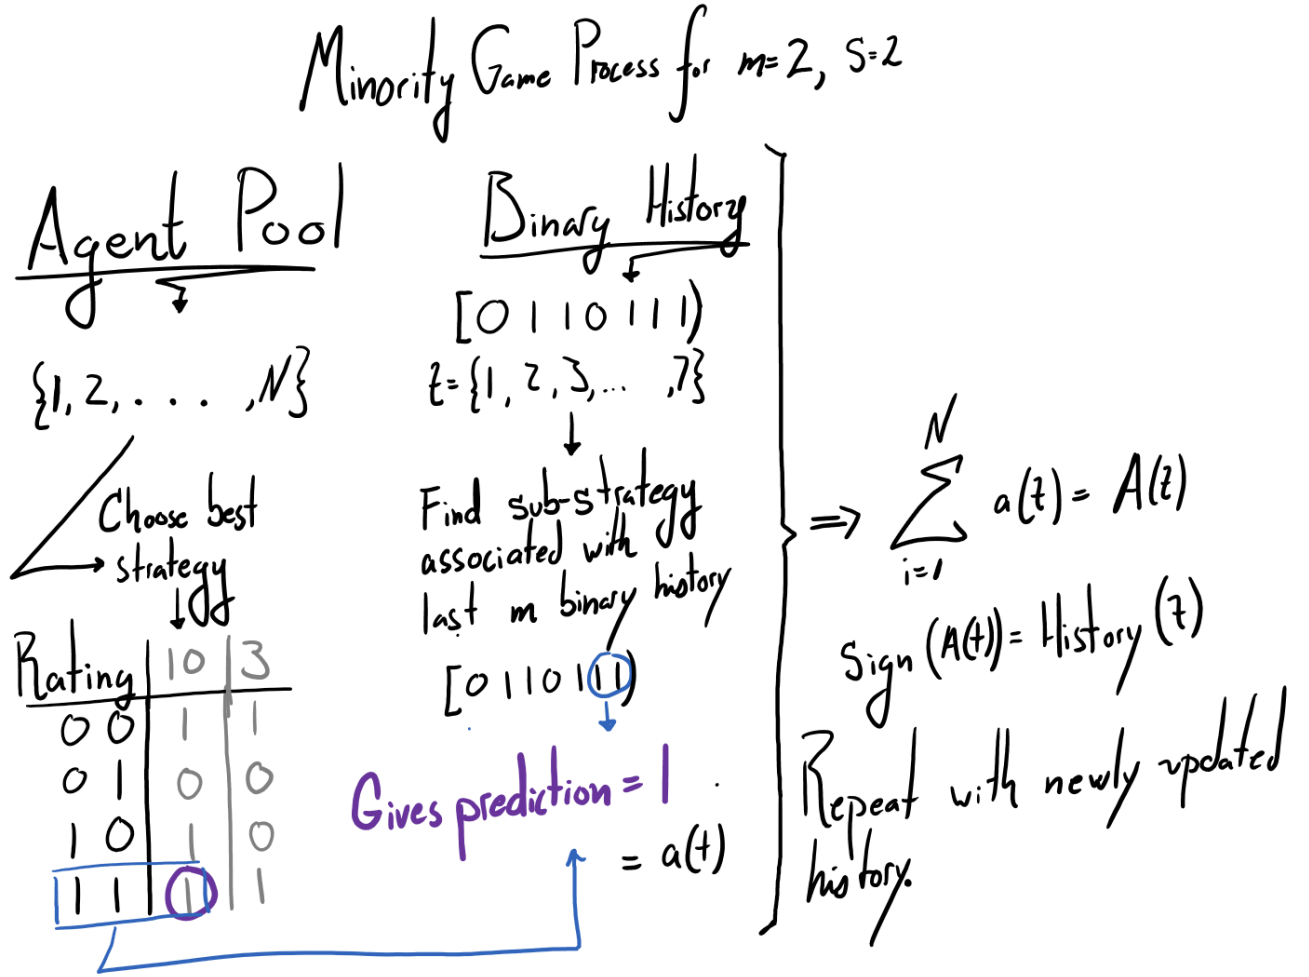 Minority Game Process for m=2, S=2
Agent Pool
{1, 2, . . . , N}
Choose best
strategy
Rating 10 3
0 0 1 1
0 1 0 0
1 0 1 0
1 1 1 1
Binary History
[0 1 1 0 1 1 1)
t={1, 2, 3, ... , 7}
Find sub-strategy
associated with
last m binary history
[0 1 1 0 1 1 1)
Gives prediction = 1
= a(t)
⇒ N
∑ a(t) = A(t)
i=1
Sign (A(t)) = History (7)
Repeat with newly updated
history.